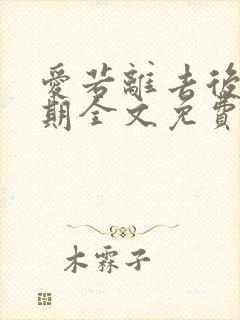 愛若離去後
期全文免費
木霖子